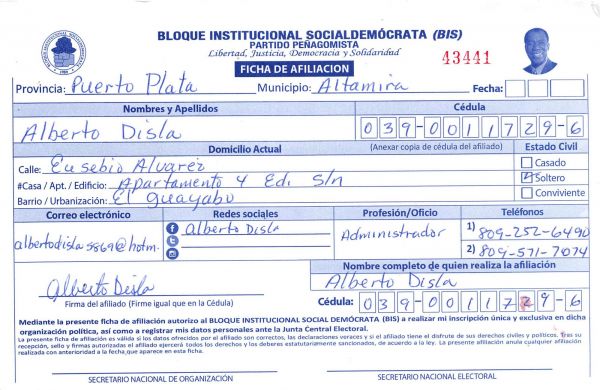 BLOQUE INSTITUCIONAL SOCIALDEMÓCRATA (BIS)
PARTIDO PEÑAGOMISTA
Libertad, Justicia, Democracia y Solidaridad
43441
FICHA DE AFILIACION
Provincia: Puerto Plata Municipio: Altamira Fecha:
Nombres y Apellidos Cédula
Alberto Disla 039-0011729-6
Domicilio Actual (Anexar copia de cédula del afiliado) Estado Civil
Calle: Eusebio Alvarez Casado
#Casa / Apt. / Edificio: Apartamento 4 Edi s/n Soltero
Barrio / Urbanización: El guayabo Conviviente
Correo electrónico Redes sociales Profesión/Oficio Teléfonos
albertodisla5869@hotm. Alberto Disla Administrador 1) 809-252-6490
2) 809-571-7074
Nombre completo de quien realiza la afiliación
Alberto Disla Alberto Disla
Firma del afiliado (Firme igual que en la Cédula) Cédula: 039-0011729-6
Mediante la presente ficha de afiliación autorizo al BLOQUE INSTITUCIONAL SOCIAL DEMÓCRATA (BIS) a realizar mi inscripción única y exclusiva en dicha
organización política, así como a registrar mis datos personales ante la Junta Central Electoral.
La presente ficha de afiliación es válida si los datos ofrecidos por el afiliado son correctos, las declaraciones veraces y si el afiliado tiene el disfrute de sus derechos civiles y políticos. Tras su
recepción, sello y firmas autorizadas el afiliado ejercerá todos los derechos y los deberes estatutariamente sancionados, de acuerdo a la ley. La presente afiliación anula cualquier afiliación
realizada con anterioridad a la fecha que aparece en esta ficha.
SECRETARIO NACIONAL DE ORGANIZACIÓN SECRETARIO NACIONAL ELECTORAL